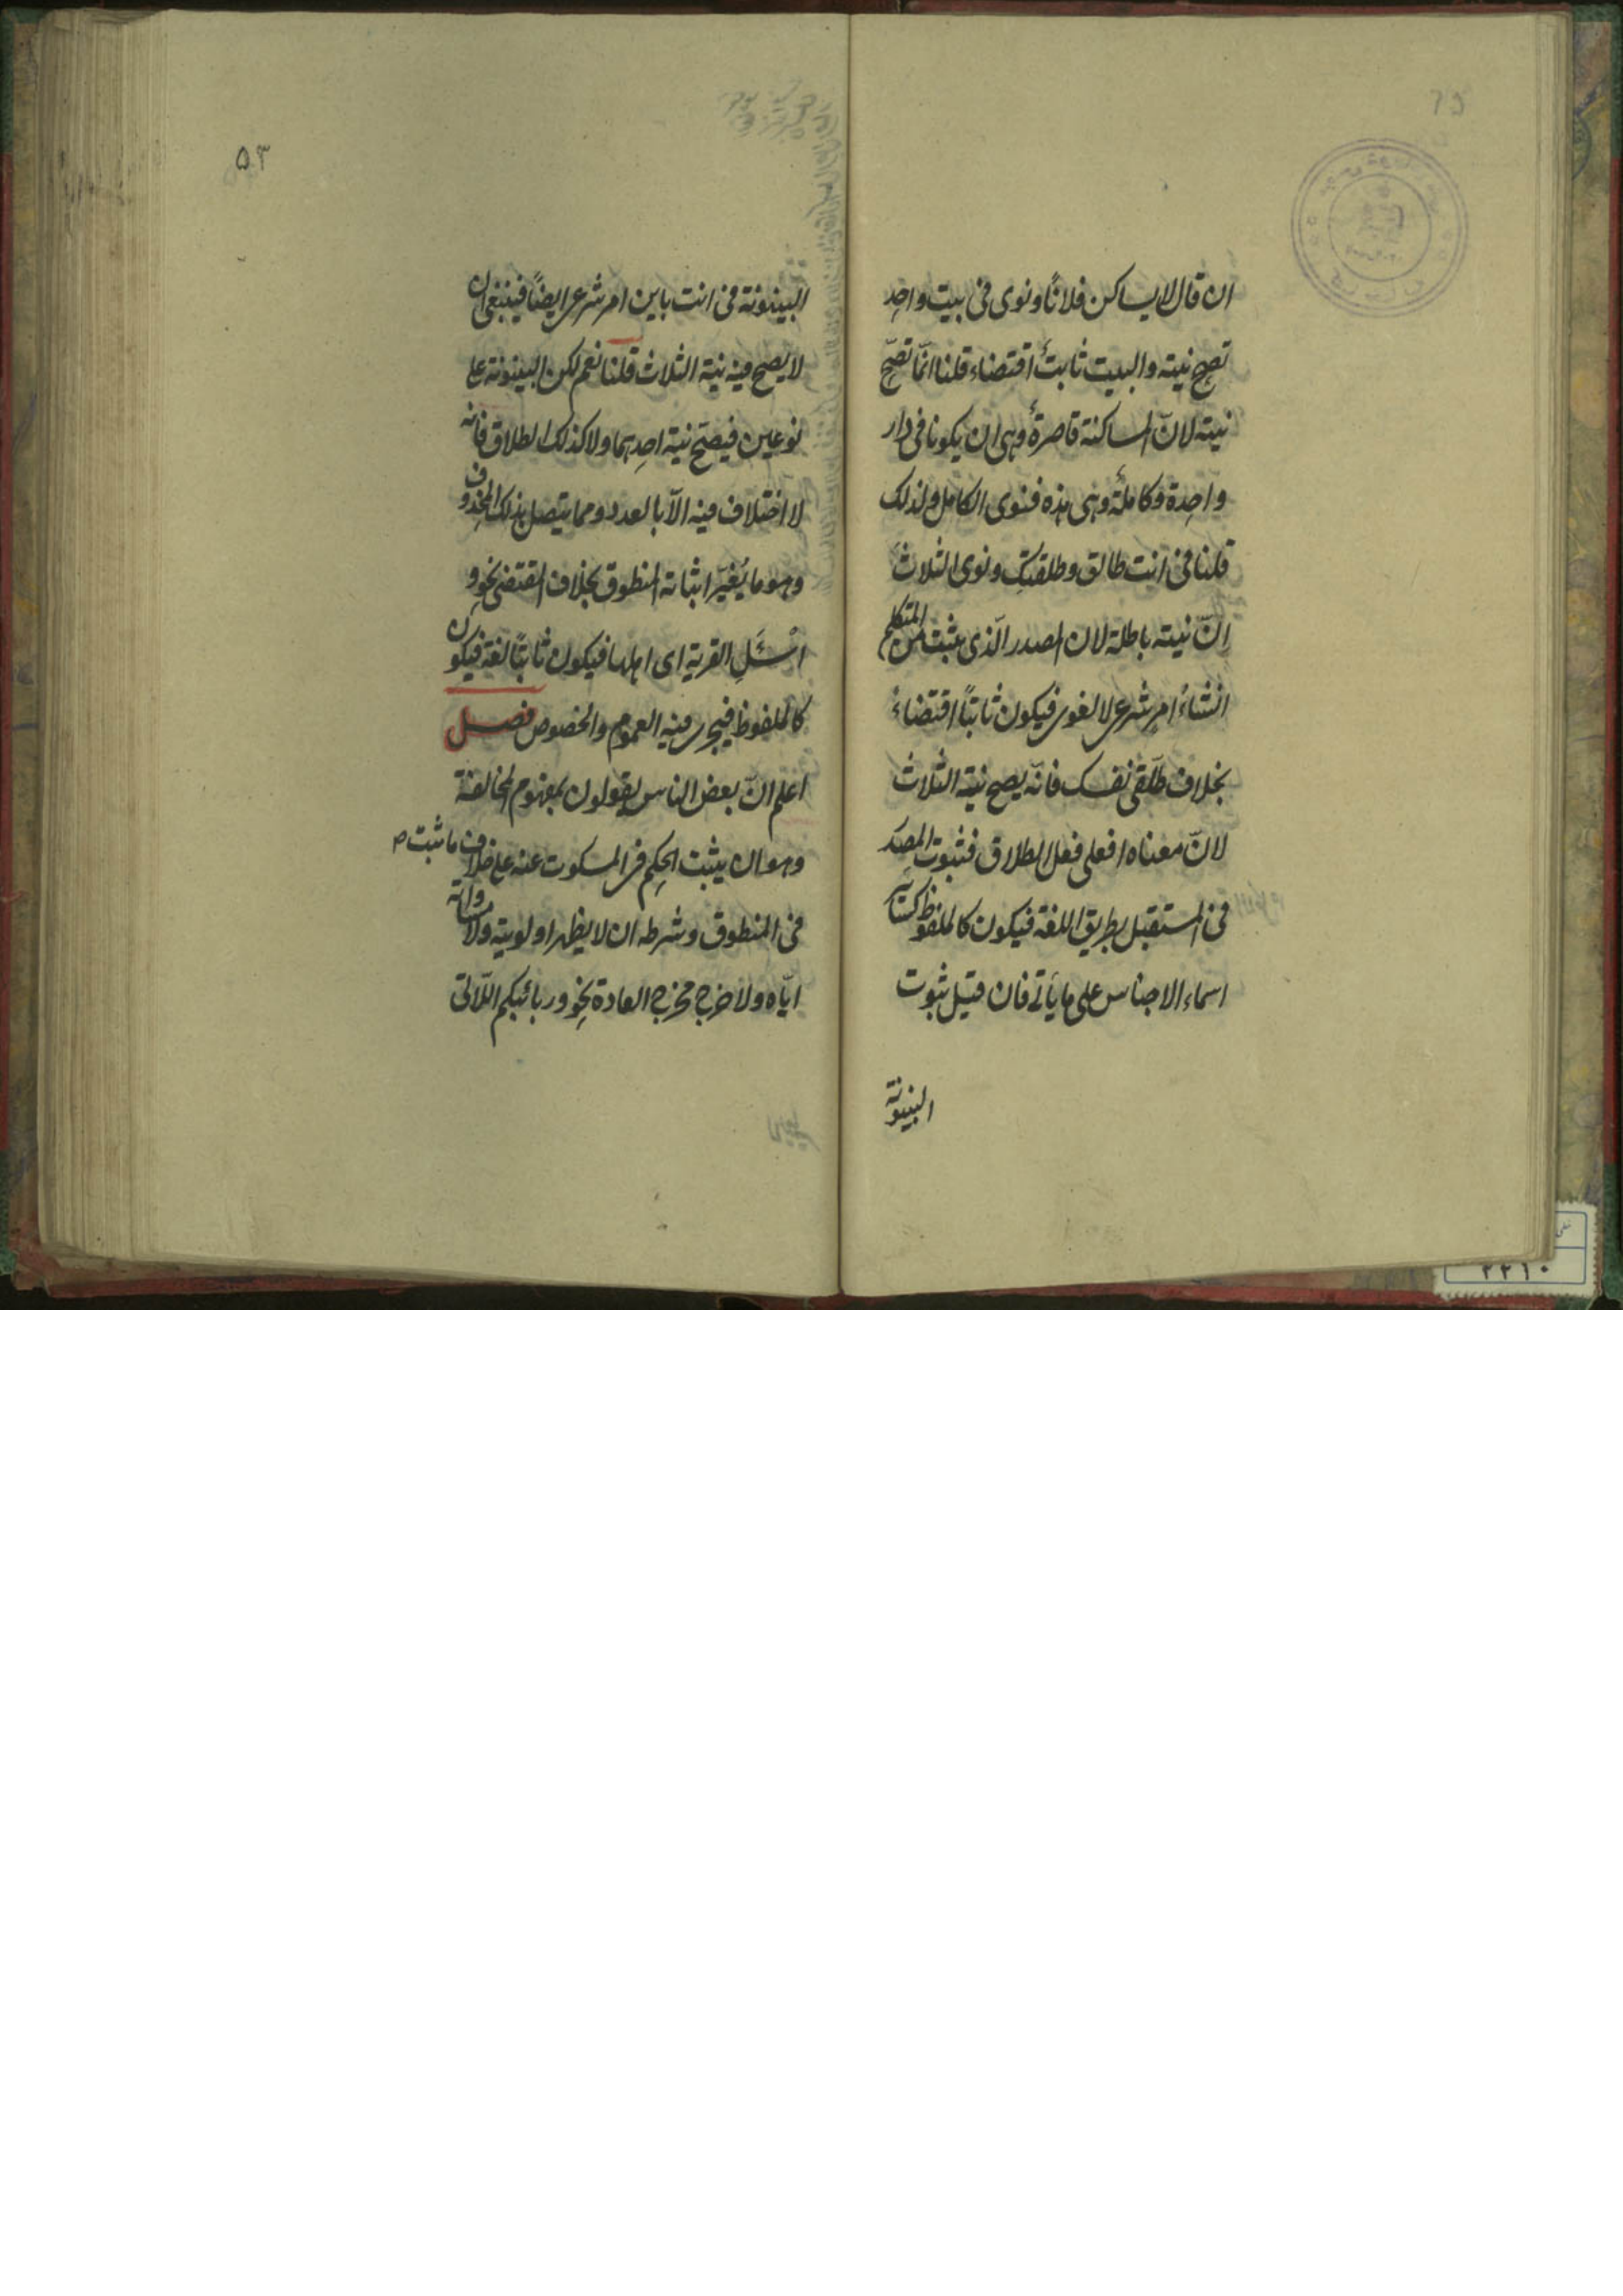 ان قال لا يساكن فلانًا ونوى فى بيت واحِدِ
تصح نيته والبيت ثابتٌ اقتضاء قلنا انّما تصحّ
نيته لانّ المساكنة قاصرةٌ وهى ان يكونا فى دار
واحِدة وكاملةٌ وهى هذه فنوى الكامل ولذلك
قلنا فى انت طالق وطلقتكِ ونوى الثلاث
اِنّ نيته باطلة لان المصدر الّذى يثبت من المتكلم
انشاءً امر شرعى لا لغوى فيكون ثابتًا اقتضاءً
بخلاف طلّقى نفسك فانّه يصح نية الثلاث
لانّ معناه افعلى فعل الطلاق فثبوت المصدر
فى المستقبل بطريق اللغة فيكون كالملفوظ كسائر
اسماء الاجناس على ما يأتى فان قيل ثبوت
البينونة
٥٣
البينونة فى انت باين امر شرعى ايضًا فينبغى ان
لا يصح فيه نية الثلاث قلنا نعم لكن البينونة على
نوعين فيصحّ نية احِديهما ولا كذلك الطلاق فانه
لا اختلاف فيه الّا بالعدد ومما يتصل بذلك المحذوف
وهو ما يُغيّر اثباته المنطوق بخلاف المقتضى نحو و
اسْئَلِ القرية اى اهلها فيكون ثابتًا لغة فيكون
كالملفوظ فيجرى فيه العموم والخصوص فصل
اعلم انّ بعض الناس يقولون بمفهوم المخالفة
وهو ان يثبت الحِكم فى المسكوت عنه على خلاف ما ثبت
فى المنطوق وشرطه ان لا يظهر اولويته ولا مساواته
ايّاه ولا خرج مخرج العادة نحِو وربائبكم اللّاتى
٢٢١٠